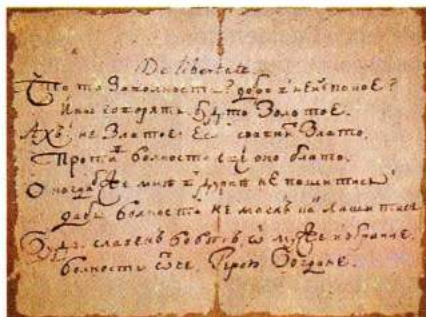 De libertate
Что то За волность? добро в ней какое?
Ины говорять будто Золотое.
Ахъ! не Златое: Если сравнит Злато,
Против волности еще оно блато.
О когда бы же мнѣ в дурнѣ не пошитись!
дабы волности не моглъ как лишитись
Будь славенъ вовѣкъ, ѽ муже избране,
волности ѿче, Герою Богдане.